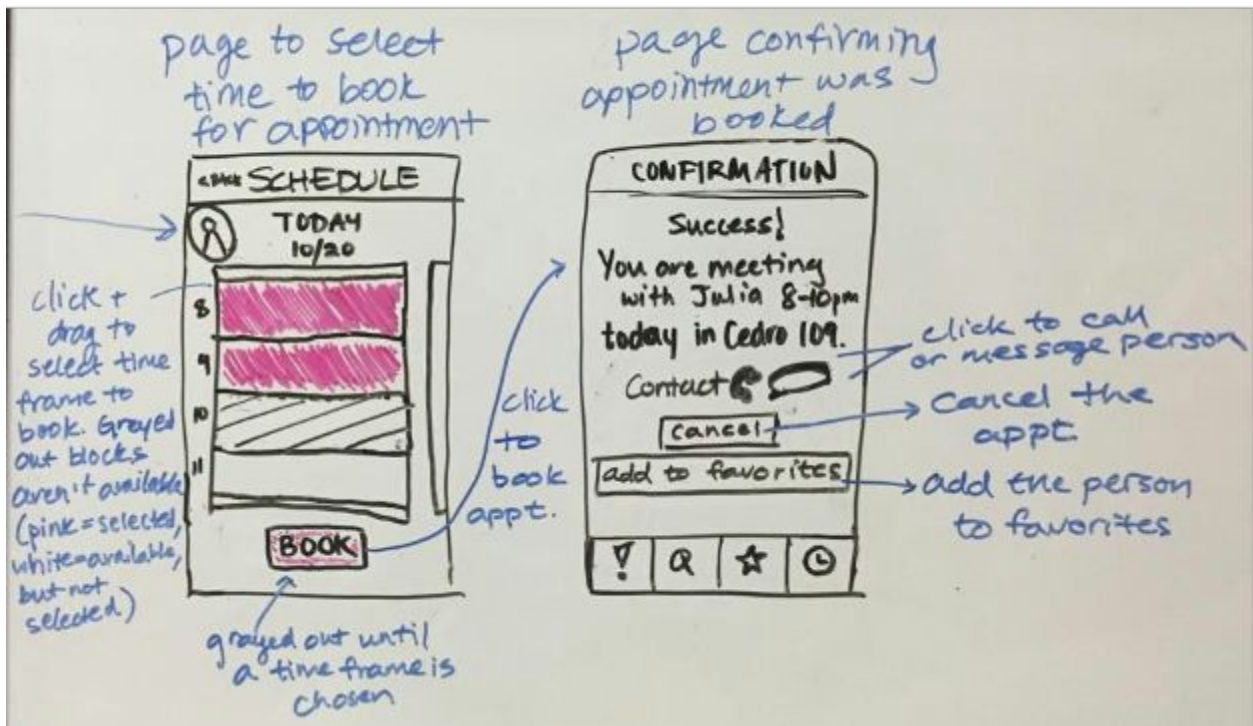 page to select
time to book
for appointment
< BACK SCHEDULE
TODAY
10/20
8
9
10
11
BOOK
click +
drag to
select time
frame to
book. Grayed
out blocks
aren't available
(pink = selected,
white = available,
but not
selected)
grayed out until
a time frame is
chosen
click
to
book
appt.
page confirming
appointment was
booked
CONFIRMATION
Success!
You are meeting
with Julia 8-10pm
today in Cedro 109.
Contact
cancel
add to favorites
click to call
or message person
cancel the
appt.
add the person
to favorites